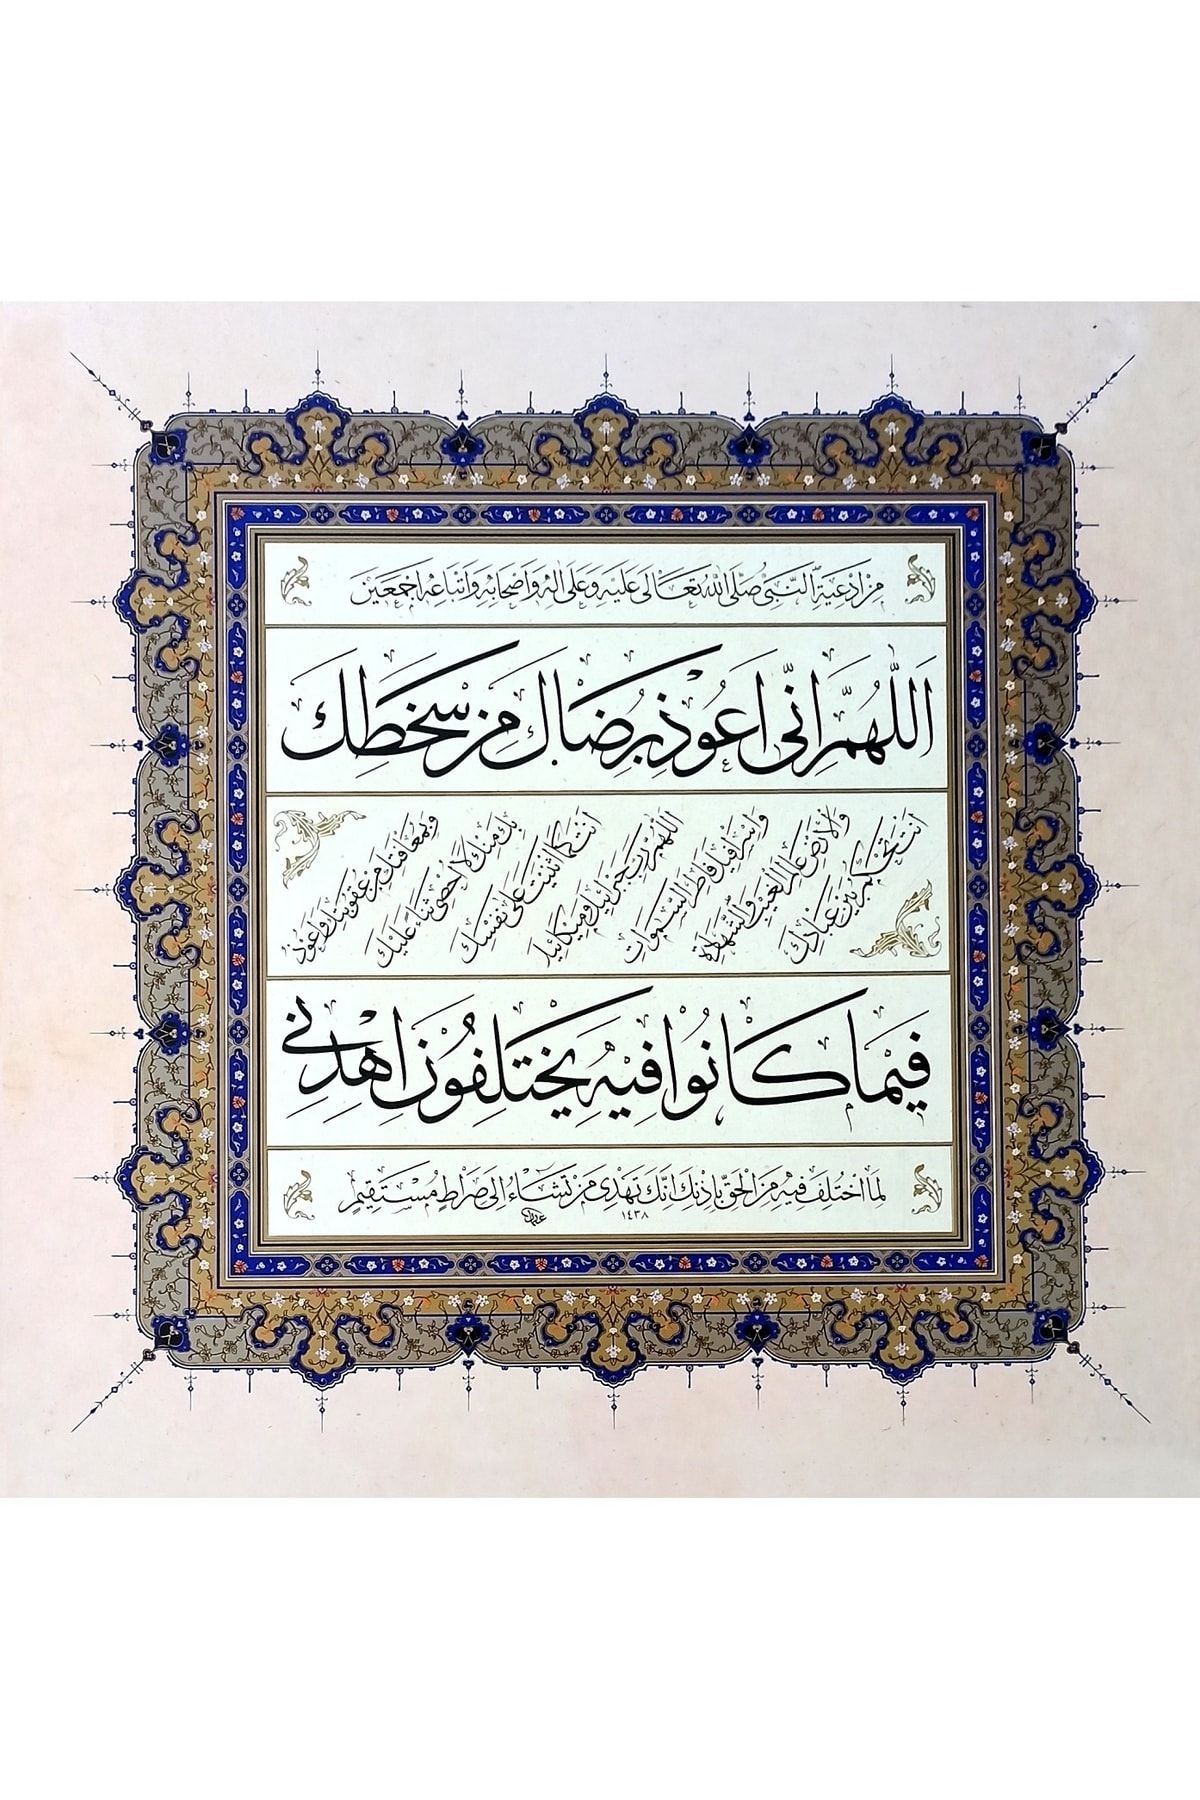 من ادعية النبى صلى الله تعالى عليه وعلى اله واصحابه واتباعه اجمعين
اَللّٰهُمَّ اِنّى اَعُوذُ بِرِضَاكَ مِنْ سَخَطِكَ
وبمعافاتك من عقوبتك واعوذ
بك منك لا احصى ثناء عليك
انت كما اثنيت على نفسك
اللهم رب جبرائيل وميكائيل
واسرافيل فاطر السموات
والارض عالم الغيب والشهادة
انت تحكم بين عبادك
فِيمَا كَانُوا فِيهِ يَخْتَلِفُونَ اهْدِنِى
لما اختلف فيه من الحق باذنك انك تهدى من تشاء الى صراط مستقيم
١٤٣٨